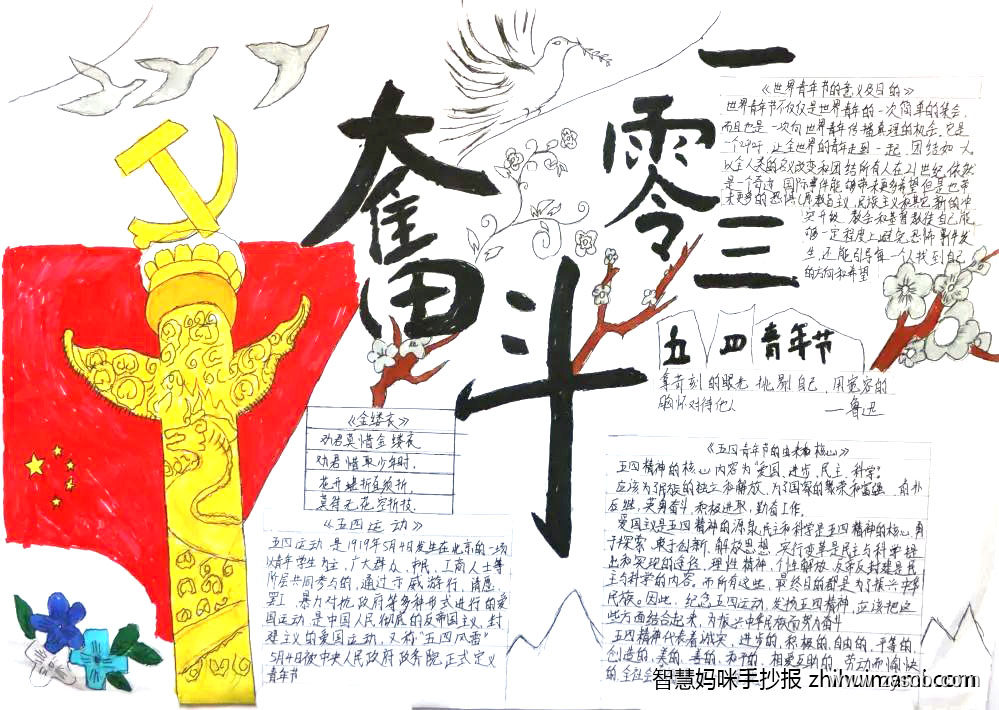 奋斗
一零三
《世界青年节的意义及目的》
世界青年节不仅仅是世界青年的一次简单的集会,
而且也是一次向世界青年传播真理的机会,它是
一个呼吁,让全世界的青年走到一起,团结如人
以全人类的名义改变和团结所有人在21世纪,依然
是一个奇迹,国际事件能够带来更多希望但是也带
来更多的恐惧
民族主义和其它新的冲
突开放
教会和基督教徒自己能
够一定程度上避免恐怖事件发
生,还能引导每一个人找到自己
的方向和希望
五四青年节
拿苛刻的眼光挑剔自己,用宽容的
胸怀对待他人
—鲁迅
《金缕衣》
劝君莫惜金缕衣
劝君惜取少年时.
花开堪折直须折,
莫待无花空折枝
《五四运动》
五四运动是1919年5月4日发生在北京的一场
以青年学生为主,广大群众、市民、工商人士等
阶层共同参与的,通过示威游行、请愿、
罢工、暴力对抗政府等多种形式进行的爱
国运动,是中国人民彻底的反帝国主义、封
建主义的爱国运动,又称"五四风雷"
5月4日被中央人民政府政务院正式定义
青年节
《五四青年节的由来和核心》
五四精神的核心内容为"爱国、进步、民主、科学".
应该为了民族的独立和解放,为了国家的繁荣和富强
英勇奋斗,积极进取,勤奋工作。
爱国主义是五四精神的源泉,民主和科学是五四精神的核心,勇
于探索、敢于创新、解放思想、实行变革是民主与科学提
出和实现的途径,理性精神、个性解放、反帝反封建是民
主与科学的内容。而所有这些,最终目的都是为了振兴中华
民族。因此,纪念五四运动,发扬五四精神,应该把这
些方面结合起来,为振兴中华民族而努力奋斗
五四精神代表着诚实、进步的、积极的、自由的、平等的、
创造的、美的、善的、和平的、相爱互助的、劳动而愉快
的、全社会
智慧妈咪手抄报 zhihuimami.com